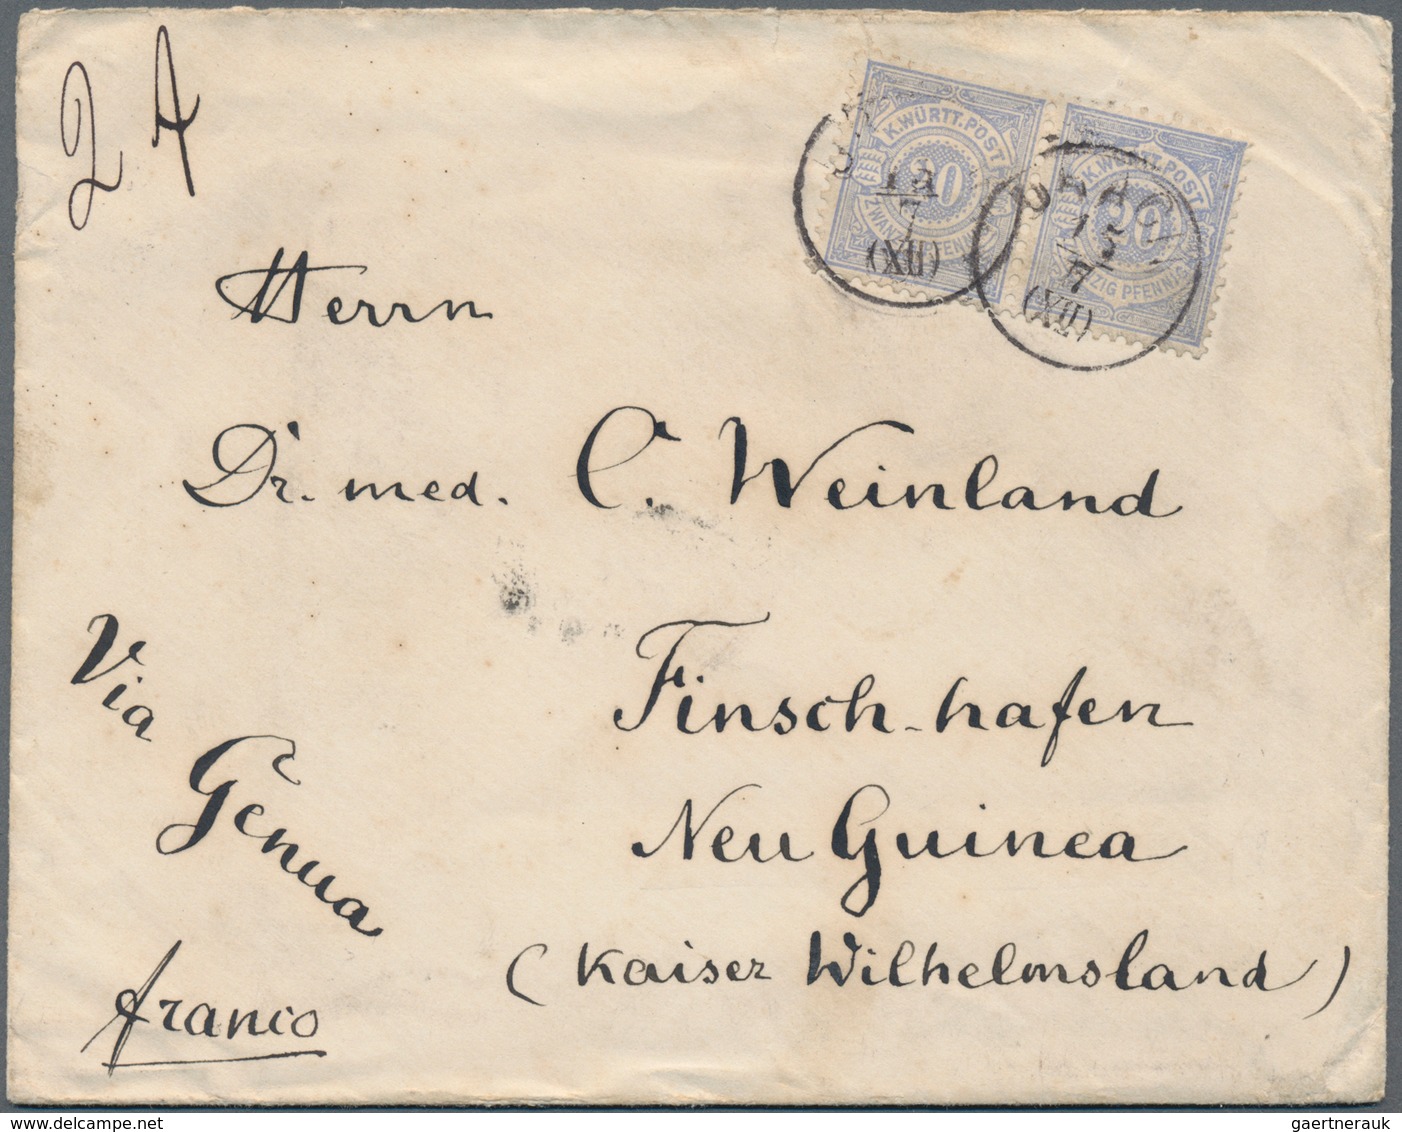 24
K. WÜRTT. POST
20
PFENNIG
K. WÜRTT. POST
20
PFENNIG
7
(XII)
15
7
(XII)
Herrn
Dr. med. C. Weinland
Finsch-hafen
Neu Guinea
(Kaiser Wilhelmsland)
Via
Genua
franco
gaertnerauk